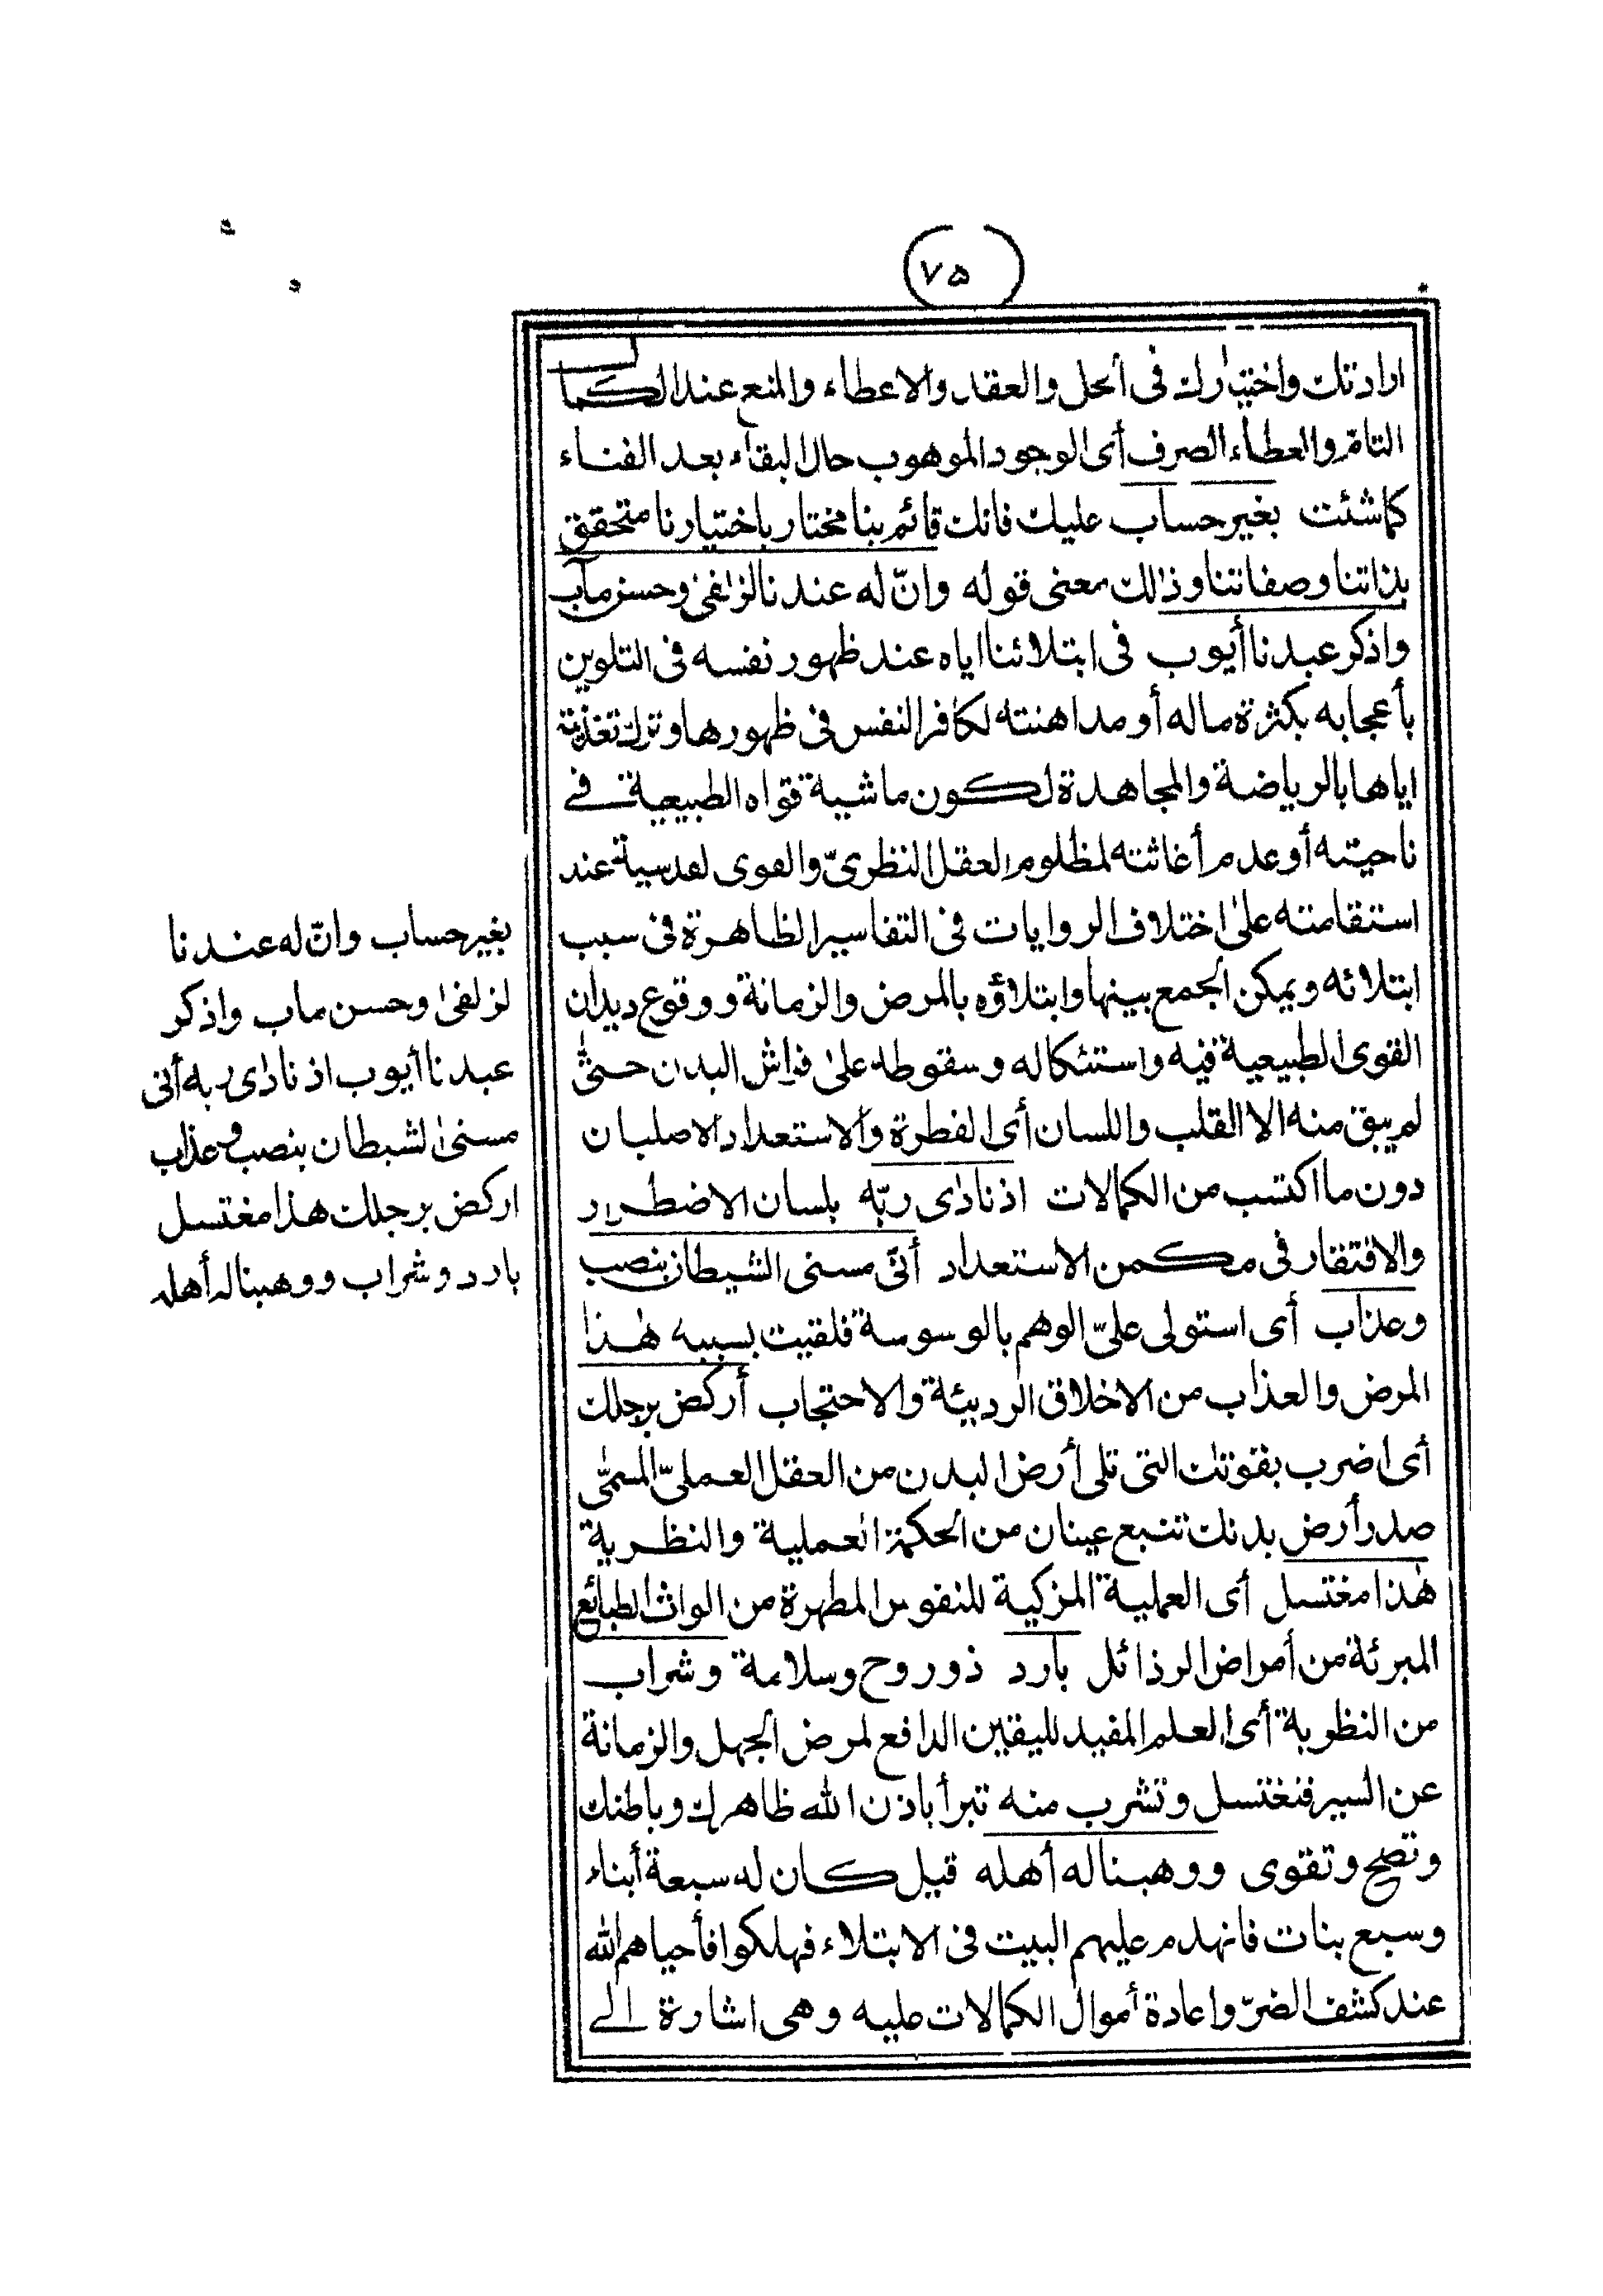 (٧٥)
ارادتك واختيارك فى الحل والعقد والاعطاء والمنع عند الكما
التام والعطاء الصرف أى الوجود الموهوب حال البقاء بعد الفناء
كما شئت بغير حساب عليك فانك قائم بنا مختار باختيارنا متحقق
بذاتنا وصفاتنا وذلك معنى قوله وانّ له عندنا لزلفى وحسن مآب
واذكر عبدنا أيوب فى ابتلائنا اياه عند ظهور نفسه فى التلوين
بأعجابه بكثرة ماله أو مداهنته لكافر النفس فى ظهورها وترك تغذيته
اياها بالرياضة والمجاهدة لكون ماشية قواه الطبيعية فى
ناحيته أو عدم أغاثته لمظلوم العقل النظرىّ والقوى لقدسية عند
استقامته على اختلاف الروايات فى التفاسير الظاهرة فى سبب
ابتلائه ويمكن الجمع بينها وابتلاؤه بالمرض والزمانة ووقوع ديدان
القوى الطبيعية فيه واستئكاله وسقوطه على فراش البدن حتى
لم يبق منه الا القلب واللسان أى الفطرة والاستعداد الاصليان
دون ما اكتسب من الكمالات اذ نادى ربّه بلسان الاضطرار
والافتقار فى مكمن الاستعداد أنّى مسنى الشيطان بنصب
وعذاب أى استولى علىّ الوهم بالوسوسة فلقيت بسببه هذا
المرض والعذاب من الاخلاق الرديئة والاحتجاب أركض برجلك
أى اضرب بقوتك التى تلى أرض البدن من العقل العملىّ المسمّى
صدر أرض بدنك تنبع عينان من الحكمة العملية والنظرية
هذا مغتسل أى العملية المزكية للنفوس المطهرة من الواث الطبائع
المبرئة من أمراض الرذائل بارد ذو روح وسلامة وشراب
من النظرية أى العلم المفيد لليقين الدافع لمرض الجهل والزمانة
عن السير فتغتسل وتشرب منه تبرأ باذن الله ظاهرك وباطنك
وتصح وتقوى ووهبنا له أهله قيل كان له سبعة أبناء
وسبع بنات فانهدم عليهم البيت فى الابتلاء فهلكوا فأحياهم الله
عند كشف الضرّ واعادة أموال الكمالات عليه وهى اشارة الى
بغير حساب وانّ له عندنا
لزلفى وحسن ماب واذكر
عبدنا أيوب اذ نادى ربه أنى
مسنى الشيطان بنصب وعذاب
اركض برجلك هذا مغتسل
بارد وشراب ووهبنا له أهله